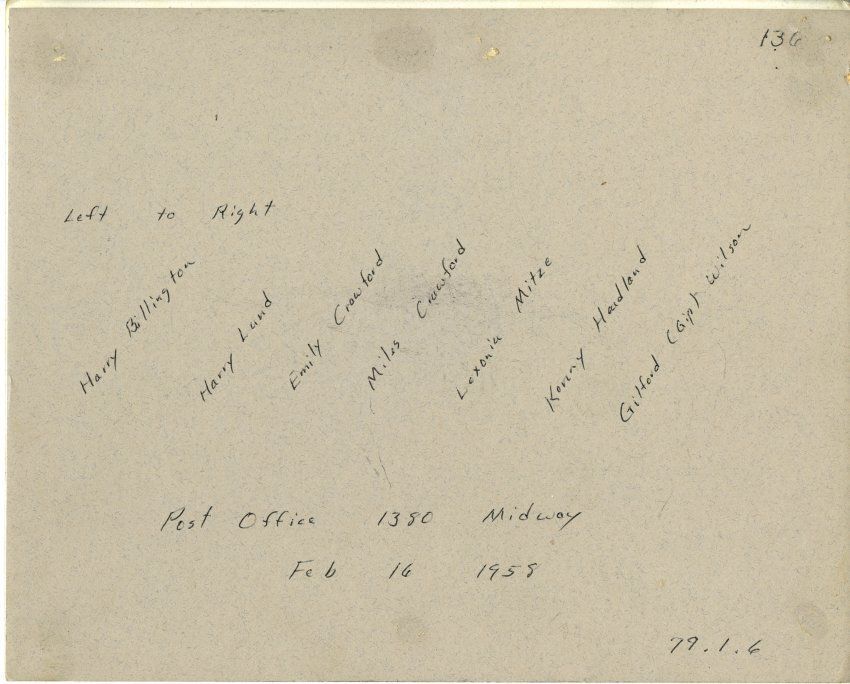 136
Left to Right
Harry Billington
Harry Lund
Emily Crawford
Miles Crawford
Lexonia Mitze
Konny Headland
Gilford (Gip) Wilson
Post Office 1380 Midway
Feb 16 1958
79.1.6